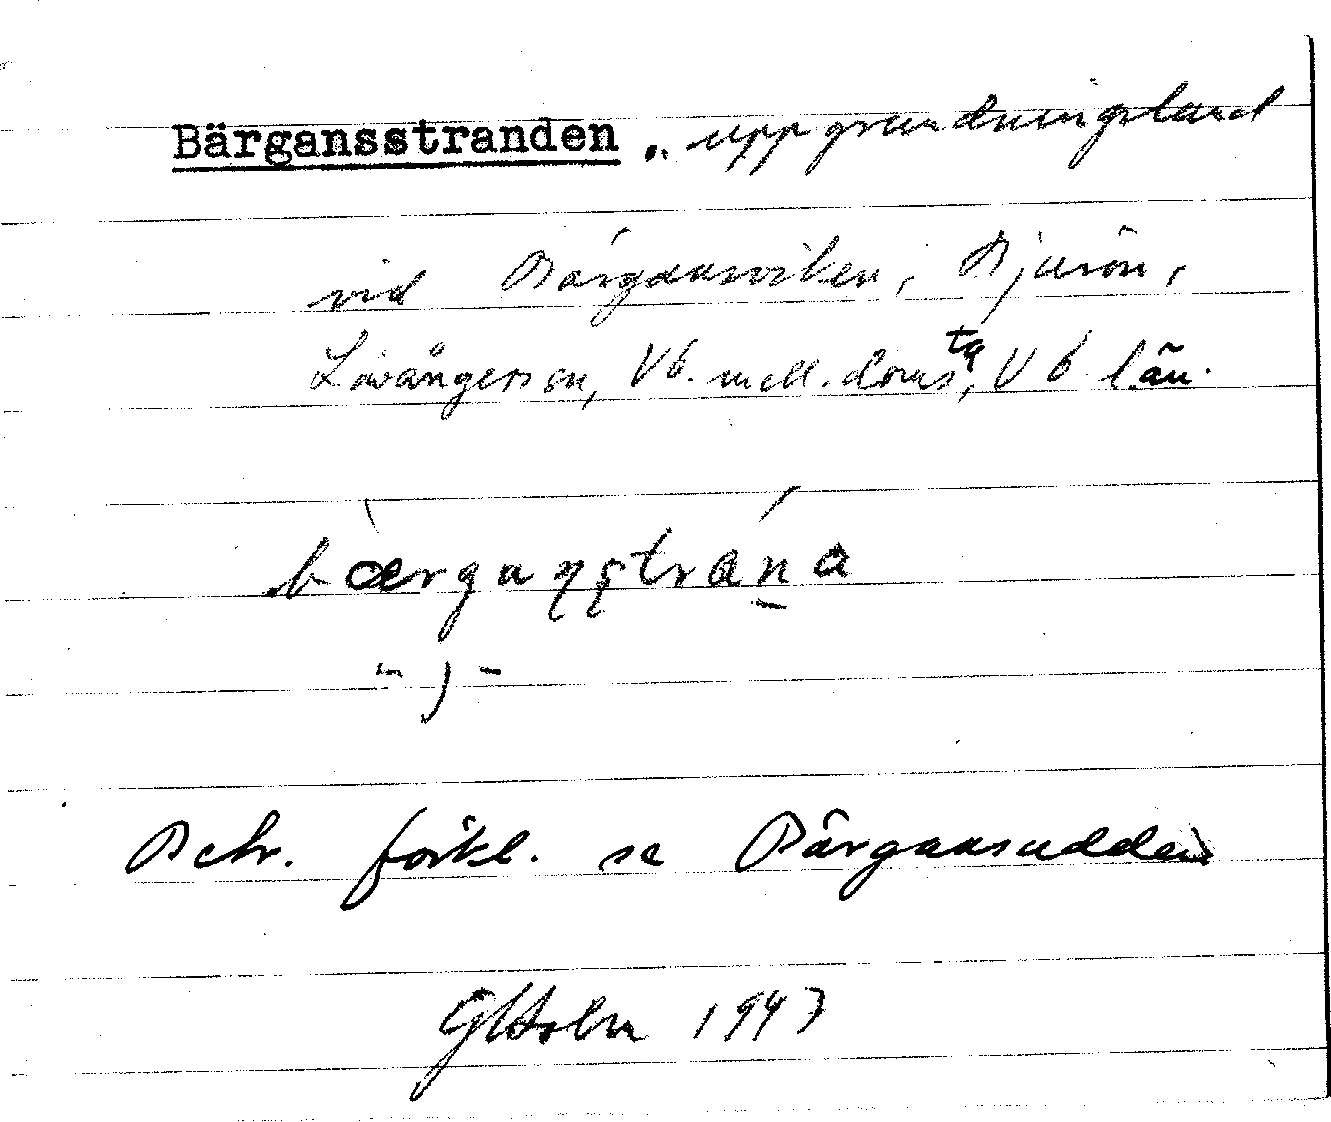 Bärgansstranden, uppgrundningsland
vid Bärgansviken, Bjurön,
Lövångers sn, Vb. mell. doms
ta, Vb län.
bærganstrána
Betr. förkl. se Bärgansudden
GHolm 1947